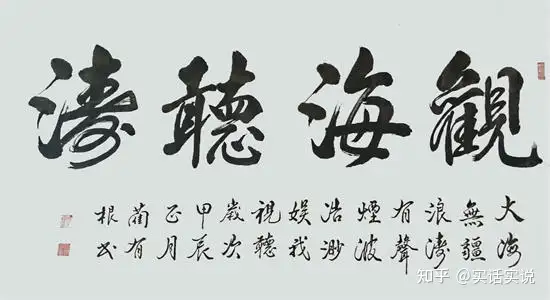 觀海聽濤
大海
無疆
浪濤
有聲
煙波
浩渺
娛我
視聽
歲次
甲辰
正月
藺有
根書
知乎 @实话实说